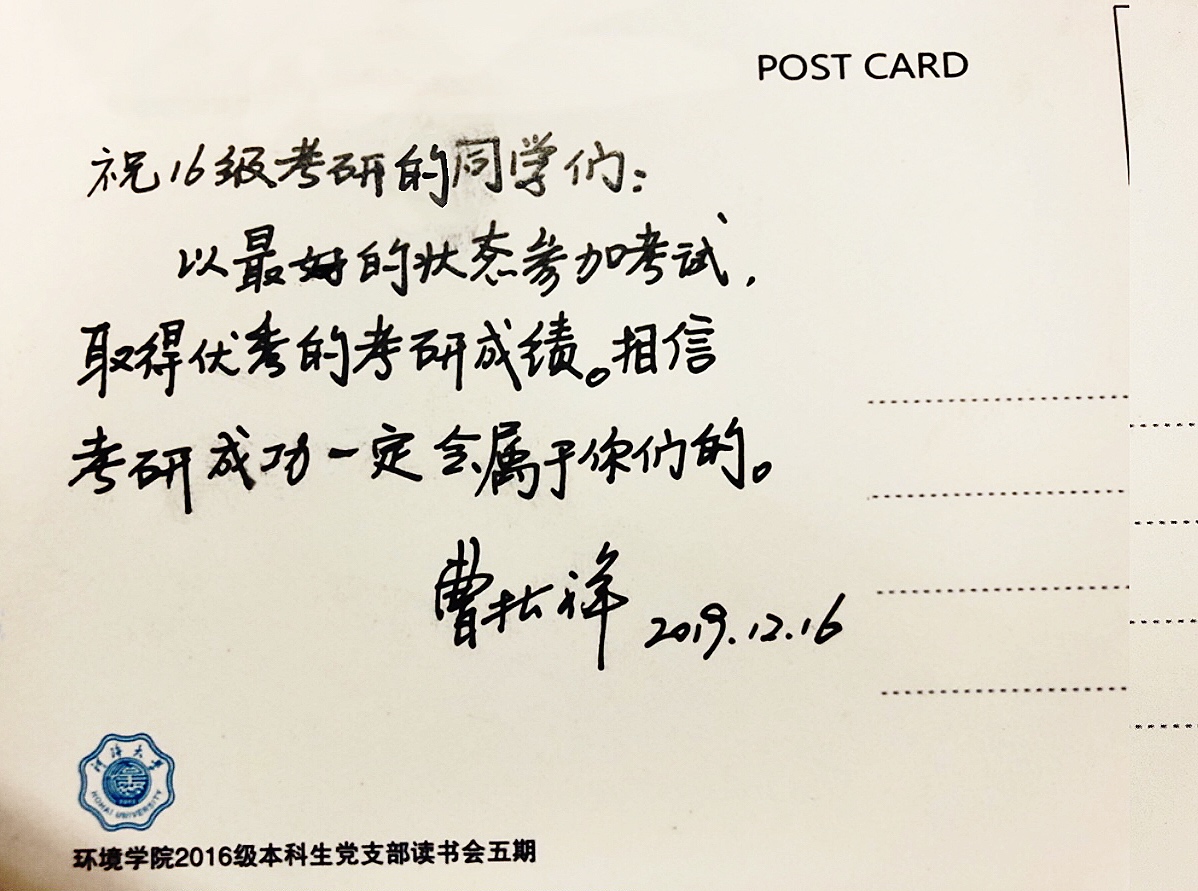 POST CARD
祝16级考研的同学们：
以最好的状态参加考试，
取得优秀的考研成绩。相信
考研成功一定会属于你们的。
曹松祥 2019.12.16
河海大学
HOHAI UNIVERSITY
环境学院2016级本科生党支部读书会五期